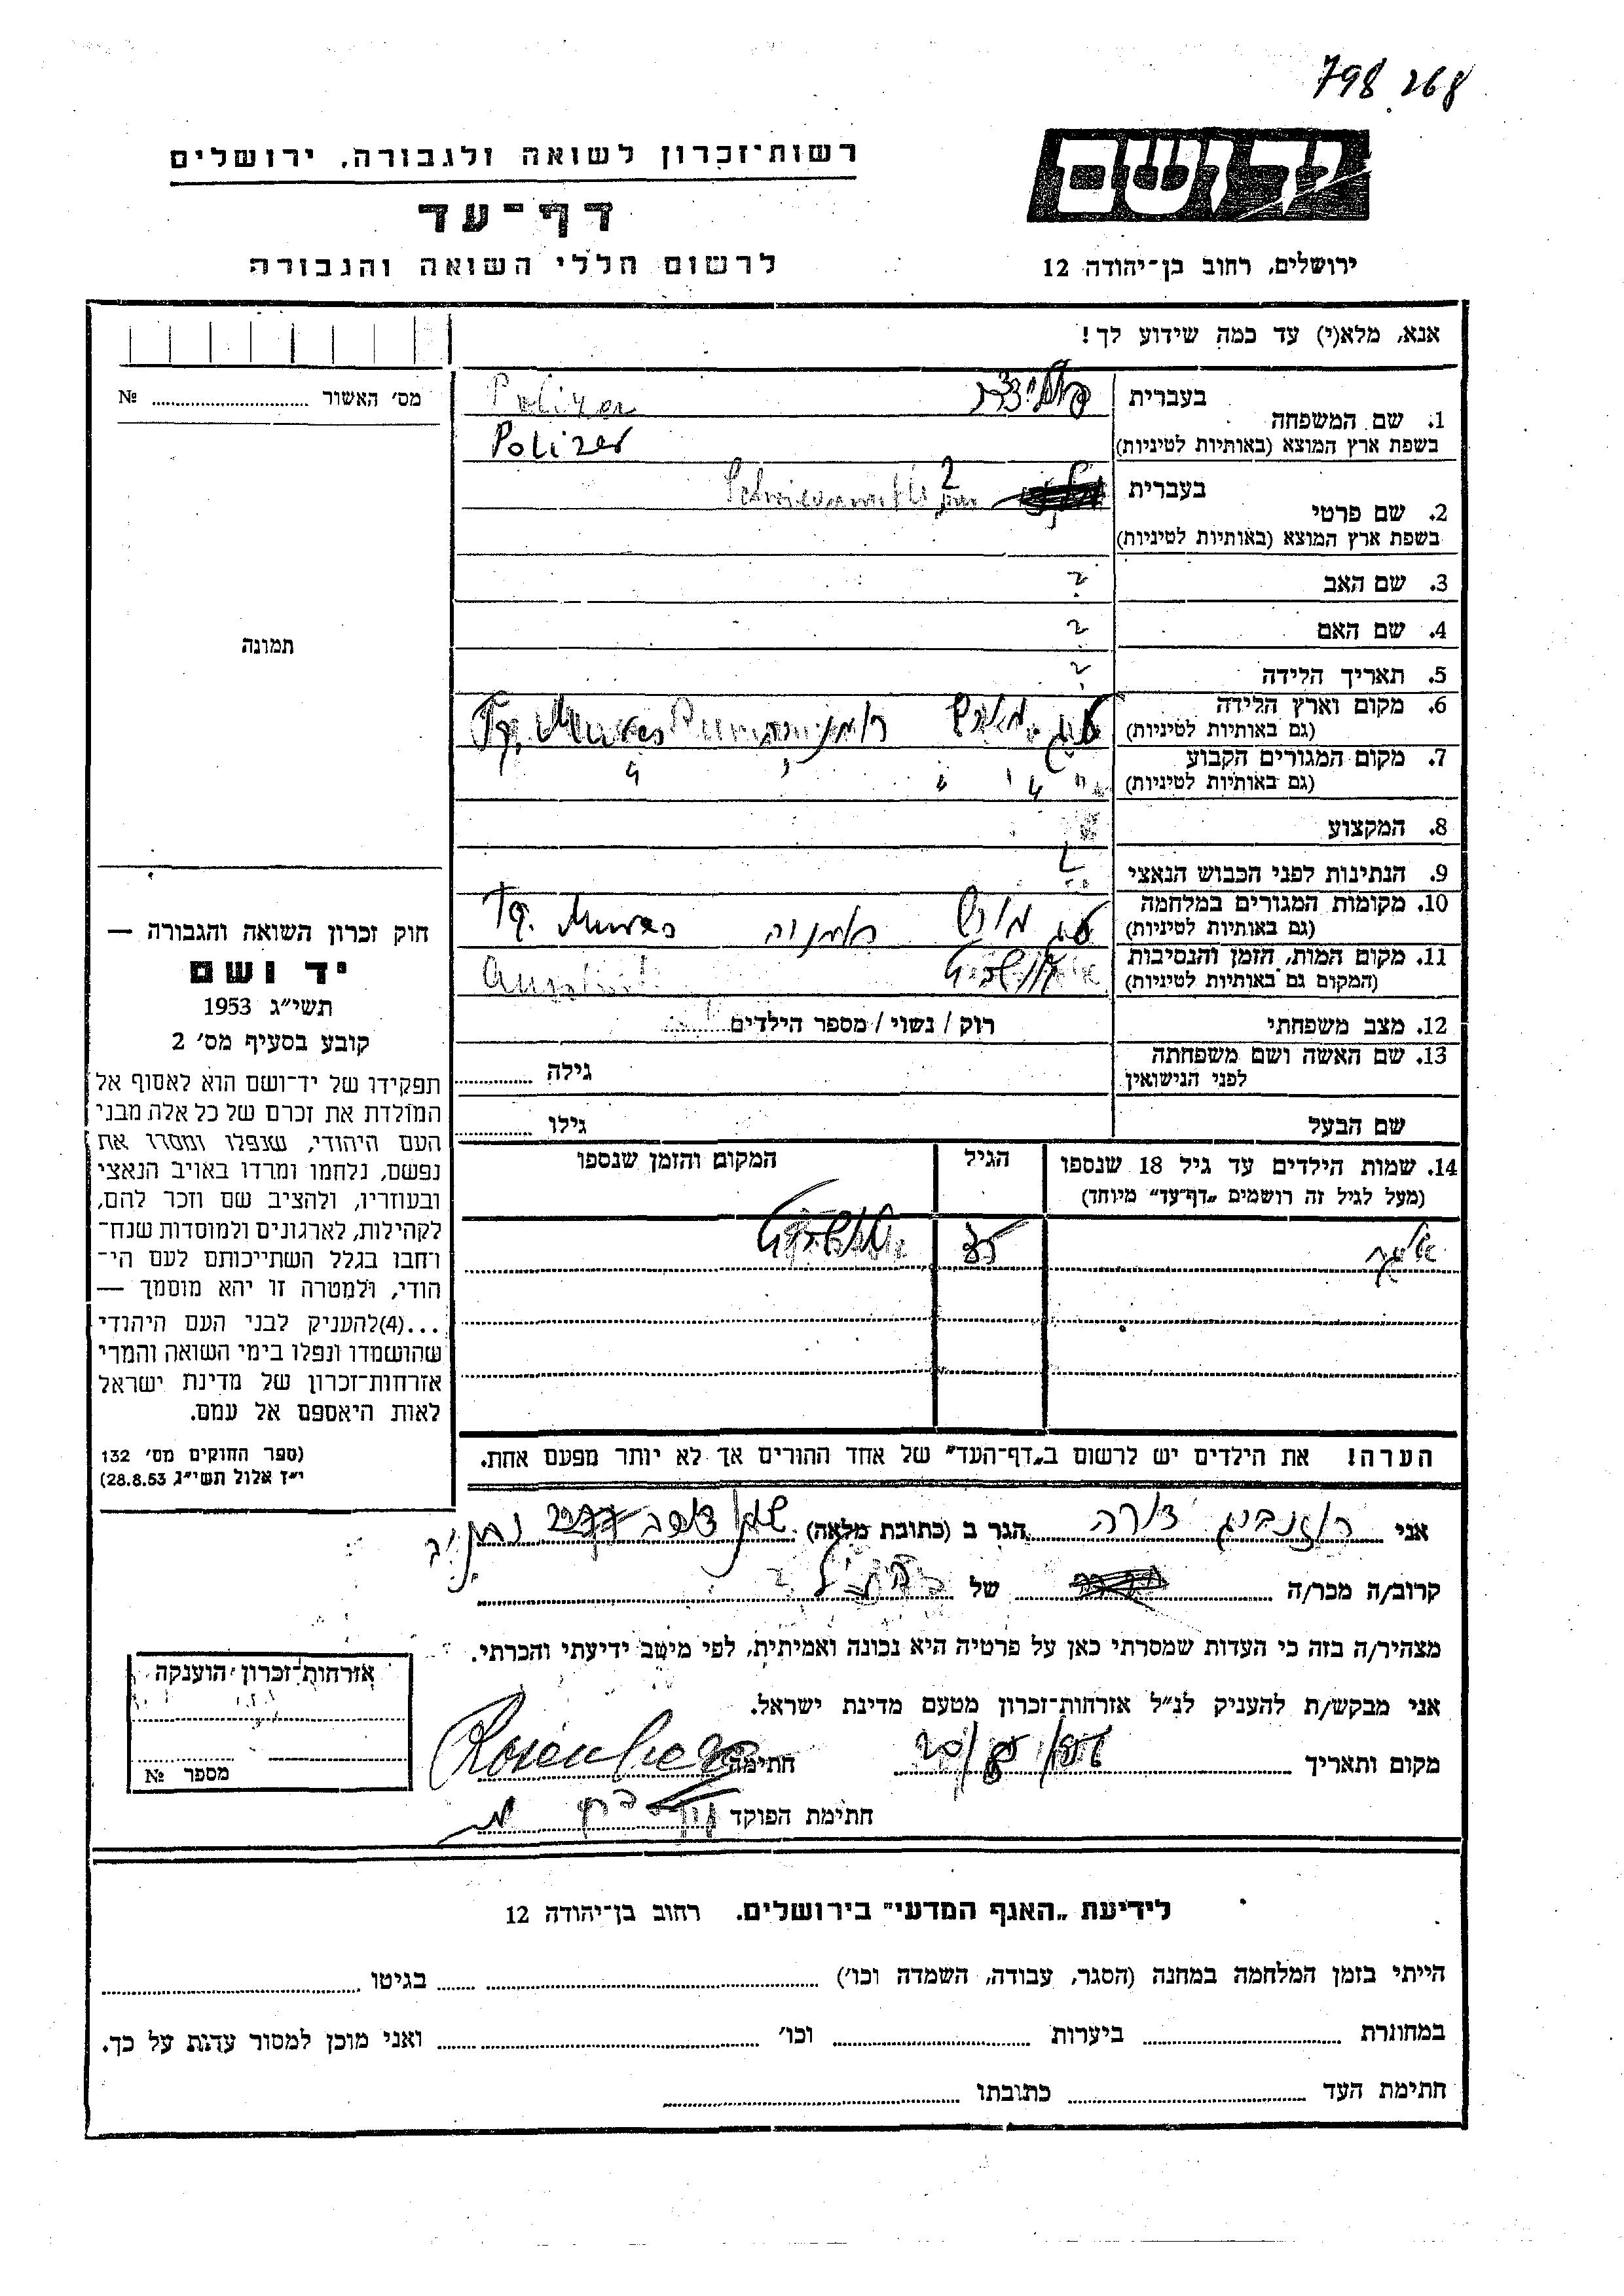 798 268
רשות־זכרון לשואה ולגבורה, ירושלים
יד ושם
דף־עד
לרשום חללי השואה והגבורה
ירושלים, רחוב בן־יהודה 12
אנא, מלא(י) עד כמה שידוע לך!
מס׳ האשור № ..........
1. שם המשפחה
בעברית פוליצר
Polizer
בשפת ארץ המוצא (באותיות לטיניות) Polizer
2. שם פרטי
בעברית ?
בשפת ארץ המוצא (באותיות לטיניות)
3. שם האב ?
4. שם האם ?
תמונה
5. תאריך הלידה ?
6. מקום וארץ הלידה
(גם באותיות לטיניות) טג. מורש רומניה Tg. Mures
7. מקום המגורים הקבוע
(גם באותיות לטיניות) " " " "
8. המקצוע
9. הנתינות לפני הכבוש הנאצי
10. מקומות המגורים במלחמה
(גם באותיות לטיניות) טג מורש רומניה Tg. Mures
11. מקום המות, הזמן והנסיבות
(המקום גם באותיות לטיניות) אושויץ
12. מצב משפחתי רוק / נשוי / מספר הילדים..........
13. שם האשה ושם משפחתה
לפני הנישואין גילה ..........
שם הבעל גילו ..........
14. שמות הילדים עד גיל 18 שנספו
(מעל לגיל זה רושמים „דף־עד” מיוחד)
הגיל
המקום והזמן שנספו
אושויץ
הערה! את הילדים יש לרשום ב„דף־העד” של אחד ההורים אך לא יותר מפעם אחת.
חוק זכרון השואה והגבורה —
יד ושם
תשי״ג 1953
קובע בסעיף מס׳ 2
תפקידו של יד־ושם הוא לאסוף אל
המולדת את זכרם של כל אלה מבני
העם היהודי, שנפלו ומסרו את
נפשם, נלחמו ומרדו באויב הנאצי
ובעוזריו, ולהציב שם וזכר להם,
לקהילות, לארגונים ולמוסדות שנח־
רחבו בגלל השתייכותם לעם הי־
הודי, ולמטרה זו יהא מוסמך —
...(4)להעניק לבני העם היהודי
שהושמדו ונפלו בימי השואה והמרי
אזרחות־זכרון של מדינת ישראל
לאות היאספם אל עמם.
(ספר החוקים מס׳ 132
י״ז אלול תשי״ג 28.8.53)
אני רוזנברג דורה הגר ב (כתובת מלאה) נתניה
קרוב/ה מכר/ה .......... של ..........
מצהיר/ה בזה כי העדות שמסרתי כאן על פרטיה היא נכונה ואמיתית, לפי מיטב ידיעתי והכרתי.
אני מבקש/ת להעניק לנ״ל אזרחות־זכרון מטעם מדינת ישראל.
מקום ותאריך .......... חתימה Rosenberg
חתימת הפוקד
אזרחות־זכרון הוענקה
מספר №
לידיעת „האגף המדעי” בירושלים. רחוב בן־יהודה 12
הייתי בזמן המלחמה במחנה (הסגר, עבודה, השמדה וכו׳) .......... בגיטו ..........
במחתרת .......... ביערות .......... וכו׳ .......... ואני מוכן למסור עדות על כך.
חתימת העד .......... כתובתו ..........